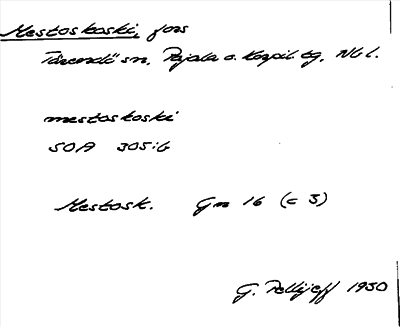 Mestoskoski, fors
Tärendö sn, Pajala o. Korpil. tg, Nbl.
mestoskoski
SOA 305:6
Mestosk. Gm 16 (c 3)
G. Pellijeff 1950